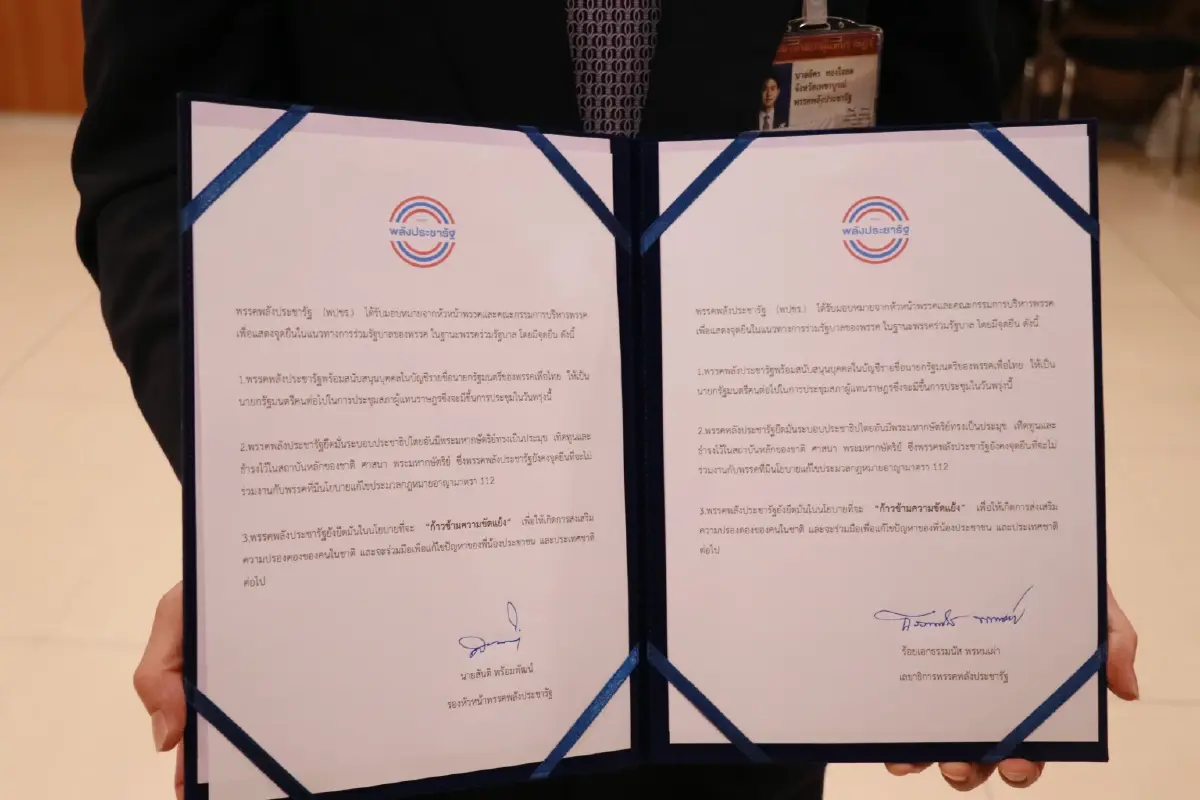 นายอัคร ทองใจสด
จังหวัดเพชรบูรณ์
พรรคพลังประชารัฐ
พลังประชารัฐ
พรรคพลังประชารัฐ (พปชร.) ได้รับมอบหมายจากหัวหน้าพรรคและคณะกรรมการบริหารพรรค
เพื่อแสดงจุดยืนในแนวทางการร่วมรัฐบาลของพรรค ในฐานะพรรคร่วมรัฐบาล โดยมีจุดยืน ดังนี้
1.พรรคพลังประชารัฐพร้อมสนับสนุนบุคคลในบัญชีรายชื่อนายกรัฐมนตรีของพรรคเพื่อไทย ให้เป็น
นายกรัฐมนตรีคนต่อไปในการประชุมสภาผู้แทนราษฎรซึ่งจะมีขึ้นการประชุมในวันพรุ่งนี้
2.พรรคพลังประชารัฐยึดมั่นระบอบประชาธิปไตยอันมีพระมหากษัตริย์ทรงเป็นประมุข เทิดทูนและ
ธำรงไว้ในสถาบันหลักของชาติ ศาสนา พระมหากษัตริย์ ซึ่งพรรคพลังประชารัฐยังคงจุดยืนที่จะไม่
ร่วมงานกับพรรคที่มีนโยบายแก้ไขประมวลกฎหมายอาญามาตรา 112
3.พรรคพลังประชารัฐยังยึดมั่นในนโยบายที่จะ “ก้าวข้ามความขัดแย้ง” เพื่อให้เกิดการส่งเสริม
ความปรองดองของคนในชาติ และจะร่วมมือเพื่อแก้ไขปัญหาของพี่น้องประชาชน และประเทศชาติ
ต่อไป
นายสันติ พร้อมพัฒน์
รองหัวหน้าพรรคพลังประชารัฐ
พลังประชารัฐ
พรรคพลังประชารัฐ (พปชร.) ได้รับมอบหมายจากหัวหน้าพรรคและคณะกรรมการบริหารพรรค
เพื่อแสดงจุดยืนในแนวทางการร่วมรัฐบาลของพรรค ในฐานะพรรคร่วมรัฐบาล โดยมีจุดยืน ดังนี้
1.พรรคพลังประชารัฐพร้อมสนับสนุนบุคคลในบัญชีรายชื่อนายกรัฐมนตรีของพรรคเพื่อไทย ให้เป็น
นายกรัฐมนตรีคนต่อไปในการประชุมสภาผู้แทนราษฎรซึ่งจะมีขึ้นการประชุมในวันพรุ่งนี้
2.พรรคพลังประชารัฐยึดมั่นระบอบประชาธิปไตยอันมีพระมหากษัตริย์ทรงเป็นประมุข เทิดทูนและ
ธำรงไว้ในสถาบันหลักของชาติ ศาสนา พระมหากษัตริย์ ซึ่งพรรคพลังประชารัฐยังคงจุดยืนที่จะไม่
ร่วมงานกับพรรคที่มีนโยบายแก้ไขประมวลกฎหมายอาญามาตรา 112
3.พรรคพลังประชารัฐยังยึดมั่นในนโยบายที่จะ “ก้าวข้ามความขัดแย้ง” เพื่อให้เกิดการส่งเสริม
ความปรองดองของคนในชาติ และจะร่วมมือเพื่อแก้ไขปัญหาของพี่น้องประชาชน และประเทศชาติ
ต่อไป
ร้อยเอกธรรมนัส พรหมเผ่า
เลขาธิการพรรคพลังประชารัฐ